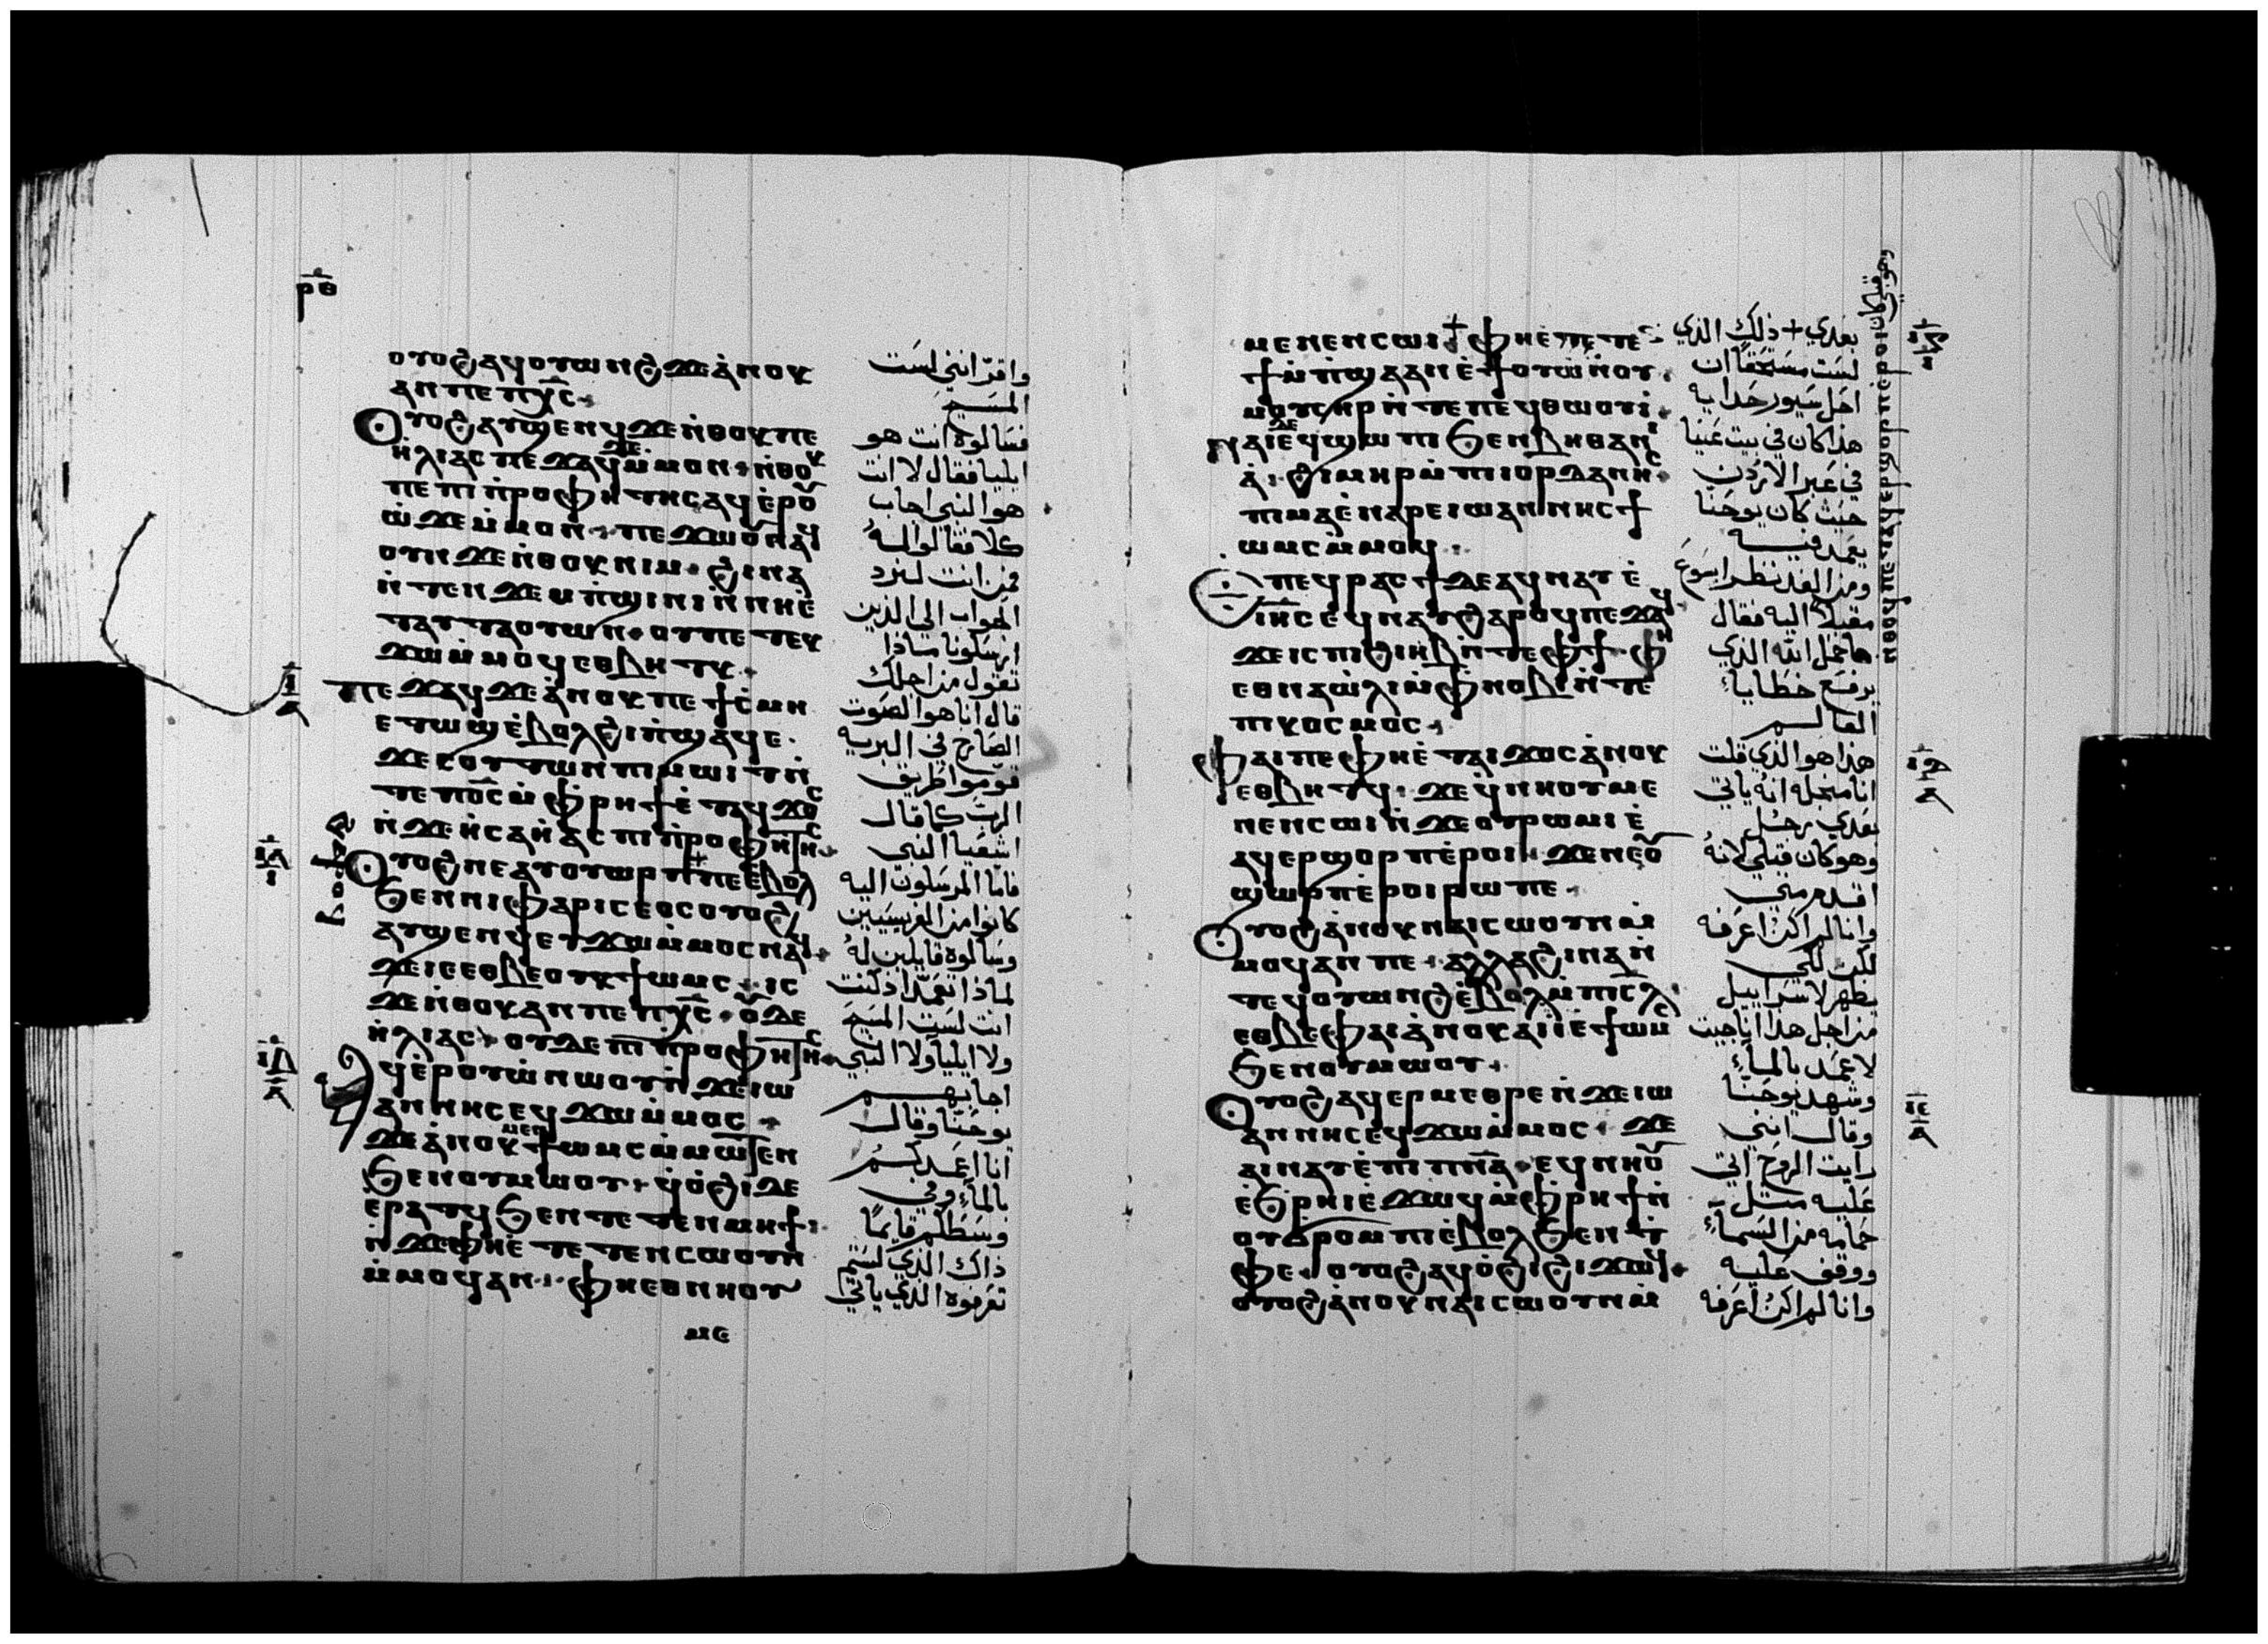 ⲣ̅ⲑ̅
ⲟⲩⲟϩ ⲁϥⲟⲩⲱⲛϩ ϫⲉ ⲁ̀ⲛⲟⲕ
ⲁⲛ ⲡⲉ ⲡⲭ̅ⲥ̅
ⲟⲩⲟϩ ⲁⲩϣⲉⲛϥ ϫⲉ ⲛ̀ⲑⲟⲕ ⲡⲉ
ⲏ̀ⲗⲓⲁⲥ ⲡⲉϫⲁϥ ϫⲉ ⲙ̀ⲙⲟⲛ ⲛ̀ⲑⲟⲕ
ⲡⲉ ⲡⲓⲡ̀ⲣⲟⲫⲏⲧⲏⲥ ⲁϥⲉ̀ⲣⲟⲩ
ⲱ̀ ϫⲉ ⲙ̀ⲙⲟⲛ ⲡⲉϫⲱⲟⲩ ⲛⲁϥ
ⲟⲩⲛ ϫⲉ ⲛ̀ⲑⲟⲕ ⲛⲓⲙ ϩⲓⲛⲁ
ⲛ̀ⲧⲉⲛϫⲉⲙ ⲡ̀ϣⲓⲛⲓ ⲛ̀ⲛⲏⲉ̀
ⲧⲁⲩⲧⲁⲟⲩⲱⲛ ⲟⲩ ⲡⲉ ⲧⲉⲕ
ϫⲱ ⲙ̀ⲙⲟϥ ⲉⲑⲃⲏⲧⲕ
ⲡⲉϫⲁϥ ϫⲉ ⲁ̀ⲛⲟⲕ ⲡⲉ ϯⲥ̀ⲙⲏ
ⲉⲧⲱϣ ⲉ̀ⲃⲟⲗ ϩⲓ ⲡ̀ϣⲁϥⲉ
ϫⲉ ⲥⲟⲩⲧⲱⲛ ⲡⲓⲙⲱⲓⲧ ⲛ̀
ⲧⲉ ⲡⲟ̅ⲥ̅ ⲙ̀ⲫⲣⲏϯ ⲉ̀ⲧⲁϥϫⲟⲥ
ⲛ̀ϫⲉ ⲏ̀ⲥⲁⲏ̀ⲁⲥ ⲡⲓⲡ̀ⲣⲟⲫⲏⲧⲏⲥ
ⲟⲩⲟϩ ⲛⲉⲁⲩⲟⲩⲱⲣⲡ ⲡⲉ ⲉ̀ⲃⲟⲗ
ϧⲉⲛ ⲛⲓⲫⲁⲣⲓⲥⲉⲟⲥ ⲟⲩⲟϩ
ⲁⲩϣⲉⲛϥ ⲉⲩϫⲱ ⲙ̀ⲙⲟⲥ ⲛⲁϥ
ϫⲉ ⲓⲉ ⲉⲑⲃⲉ ⲟⲩ ⲕϯⲱⲙⲥ ⲓⲥ
ϫⲉ ⲛ̀ⲑⲟⲕ ⲁⲛ ⲡⲉ ⲡⲭ̅ⲥ̅ ⲟⲩⲇⲉ
ⲏ̀ⲗⲓⲁⲥ ⲟⲩⲇⲉ ⲡⲓⲡ̀ⲣⲟⲫⲏⲧⲏⲥ
ⲁϥⲉ̀ⲣⲟⲩⲱ̀ ⲛⲱⲟⲩ ⲛ̀ϫⲉ ⲓⲱ
ⲁⲛⲛⲏⲥ ⲉϥϫⲱ ⲙ̀ⲙⲟⲥ
ϫⲉ ⲁ̀ⲛⲟⲕ ⲙⲉⲛ ϯⲱⲙⲥ ⲙ̀ⲙⲱⲧⲉⲛ
ϧⲉⲛ ⲟⲩⲙⲱⲟⲩ ϥ̀ⲟ̀ϩⲓ ⲇⲉ
ⲉ̀ⲣⲁⲧϥ ϧⲉⲛ ⲧⲉⲧⲉⲛⲙⲏϯ
ⲛ̀ϫⲉ ⲫⲏⲉ̀ⲧⲉⲧⲉⲛⲥⲱⲟⲩⲛ
ⲙ̀ⲙⲟϥ ⲁⲛ ⲫⲏⲉⲑⲛⲏⲟⲩ
ⲙⲉ
واقرّ انني لست
المسيح
فسالوه انت هو
ايليا فقال لا انت
هو النبي اجاب
كلا فقالوا له
فمن انت لنرد
الجواب الى الذين
ارسلونا ماذا
تقول من اجلك
قال انا هو الصوت
الصارخ في البريه
قوموا طريق
الرب كما قال
اشعيا النبي
فاما المرسلون اليه
كانوا من الفريسيين
وسالوه قايلين له
لماذا تعمد اذ كنت
انت لست المسيح
ولا ايليا ولا النبي
اجابهم
يوحنا وقال
انا اعمدكم
بالماء وفي
وسطكم قايما
ذاك الذي لستم
تعرفوه الذي ياتي
ⲙⲉⲛⲉⲛⲥⲱⲓ ⲫⲏⲉ̀ⲧⲉ ⲧⲉ
ϯⲙ̀ⲡ̀ϣⲁ ⲁⲛ ⲉ̀ϯⲟⲩⲱ̀ ⲛ̀ⲟⲩ
ⲙⲟⲩⲥⲏⲣ ⲛ̀ⲧⲉ ⲡⲉϥⲑⲱⲟⲩⲓ̀
ⲛⲁⲓ ⲇⲉ ⲉϥϣⲱⲡⲓ ϧⲉⲛ ⲃⲏⲑⲁⲛⲓ
ⲁ̀ ϩⲓⲙⲏⲣ ⲙ̀ⲡⲓⲟⲣⲇⲁⲛⲏⲥ
ⲡⲓⲙⲁ ⲉ̀ⲛⲁⲣⲉ ⲓⲱⲁⲛⲛⲏⲥ ϯ
ⲱⲙⲥ ⲙ̀ⲙⲟϥ
ⲡⲉϥⲣⲁⲥϯ ⲇⲉ ⲁϥⲛⲁⲩ ⲉ̀
ⲓⲏ̅ⲥ̅ ⲉϥⲛⲁⲩ ϩⲁⲣⲟϥ ⲡⲉϫⲁϥ
ϫⲉ ⲓⲥ ⲡⲓϩⲓⲏⲃ ⲛ̀ⲧⲉ ⲫϯ ⲫⲏ
ⲉⲑⲛⲁⲱ̀ⲗⲓ ⲙ̀ⲫⲛⲟⲃⲓ ⲛ̀ⲧⲉ
ⲡⲓⲕⲟⲥⲙⲟⲥ
ⲫⲁⲓ ⲡⲉ ⲫⲏⲉ̀ⲧⲁⲓϫⲟⲥ ⲁ̀ⲛⲟⲕ
ⲉⲑⲃⲏⲧϥ ϫⲉ ϥ̀ⲛⲏⲟⲩ ⲙⲉ
ⲛⲉⲛⲥⲱⲓ ⲛ̀ϫⲉ ⲟⲩⲣⲱⲙⲓ ⲉ̀
ⲁϥⲉⲣϣⲟⲣⲡ ⲉ̀ⲣⲟⲓ ϫⲉ ⲛⲉⲟⲩ
ϣⲱⲣⲡ ⲉ̀ⲣⲟⲓ ⲣⲱ ⲡⲉ
ⲟⲩⲟϩ ⲁ̀ⲛⲟⲕ ⲛⲁⲓⲥⲱⲟⲩⲛ ⲙ̀
ⲙⲟϥ ⲁⲛ ⲡⲉ ⲁⲗⲗⲁ ϩⲓⲛⲁ ⲛ̀
ⲧⲉϥⲟⲩⲱⲛϩ ⲉ̀ⲃⲟⲗ ⲙ̀ⲡⲓⲥ̅ⲗ̅
ⲉⲑⲃⲉ ⲫⲁⲓ ⲁ̀ⲛⲟⲕ ⲁⲓⲓ̀ ⲉ̀ϯⲱⲙⲥ
ϧⲉⲛ ⲟⲩⲙⲱⲟⲩ
ⲟⲩⲟϩ ⲁϥⲉⲣⲙⲉⲑⲣⲉ ⲛ̀ϫⲉ ⲓⲱ
ⲁⲛⲛⲏⲥ ⲉϥϫⲱ ⲙ̀ⲙⲟⲥ ϫⲉ
ⲁⲓⲛⲁⲩ ⲉ̀ⲡⲓⲡⲛ̅ⲁ̅ ⲉϥⲛⲏⲟⲩ
ⲉ̀ϧⲣⲏⲓ ⲉ̀ϫⲱϥ ⲙ̀ⲫⲣⲏϯ ⲛ̀
ⲟⲩϭⲣⲟⲙⲡⲓ ⲉ̀ⲃⲟⲗ ϧⲉⲛ ⲧ̀
ⲫⲉ ⲟⲩⲟϩ ⲁϥⲟ̀ϩⲓ ϩⲓϫⲱϥ
ⲟⲩⲟϩ ⲁ̀ⲛⲟⲕ ⲛⲁⲓⲥⲱⲟⲩⲛ ⲙ̀
بعدي + ذلك الذي
لست مستحقا ان
احل سيور حذايه
هذا كان في بيت عنيا
في عبر الاردن
حيث كان يوحنا
يعمد فيه
ومن الغد نظر ايسوع
مقبلا اليه فقال
ها حمل الله الذي
يرفع خطايا
العالم
هذا هو الذي قلت
انا من اجله انه ياتي
بعدي رجل
وهو كان قبلي لانه
اقدم مني
وانا لم اكن اعرفه
لكن لكي
يظهر لاسراييل
من اجل هذا انا جيت
لاعمد بالماء
وشهد يوحنا
وقال انني
رايت الروح اتي
عليه مثل
حمامه من السماء
ووقف عليه
وانا لم اكن اعرفه